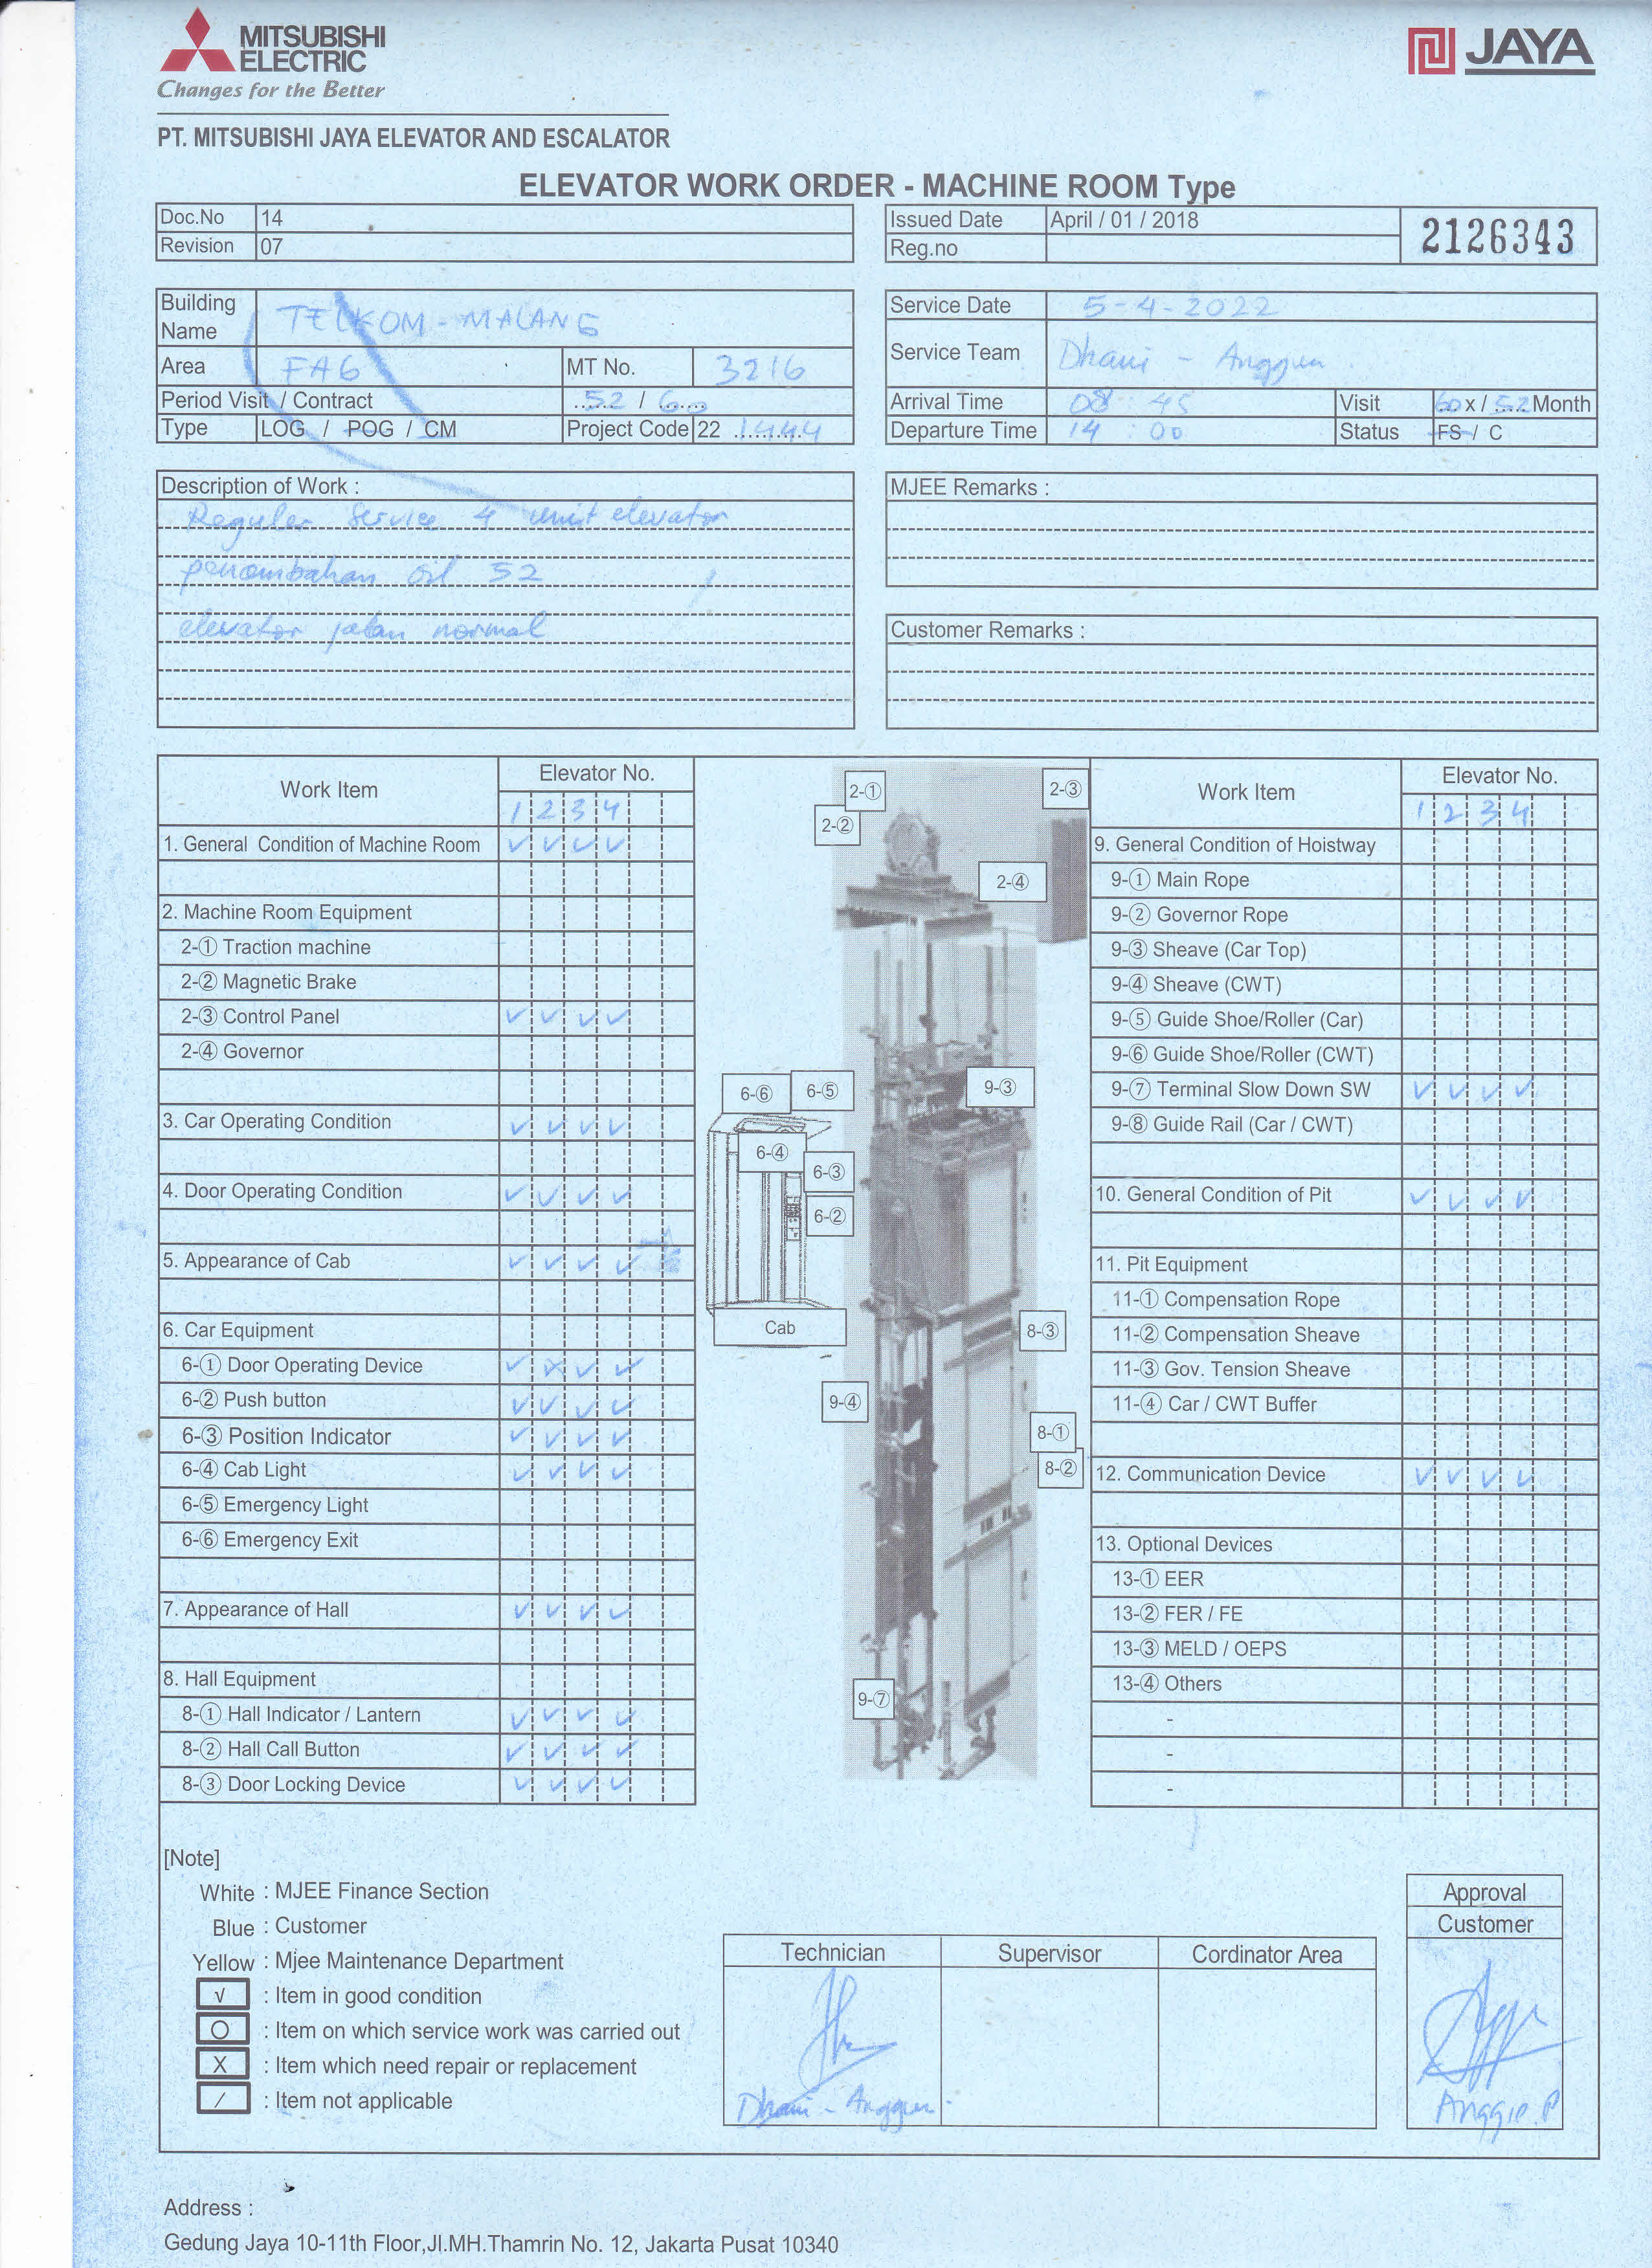 MITSUBISHI
ELECTRIC
Changes for the Better
JAYA
PT. MITSUBISHI JAYA ELEVATOR AND ESCALATOR
ELEVATOR WORK ORDER - MACHINE ROOM Type
Doc.No 14
Revision 07
Issued Date April / 01 / 2018
Reg.no
2126343
Building Name TELKOM - MALANG
Area FA6 MT No. 3216
Period Visit / Contract 52 / 60
Type LOG / POG / CM Project Code 22 1444
Service Date 5-4-2022
Service Team Dhani - Anggun
Arrival Time 08 : 45 Visit 60 x / 52 Month
Departure Time 14 : 00 Status FS / C
Description of Work :
Reguler service 4 unit elevator
penambahan oil 52
elevator jalan normal
MJEE Remarks :
Customer Remarks :
Work Item Elevator No.
1 2 3 4
1. General Condition of Machine Room √ √ √ √
2. Machine Room Equipment
2-① Traction machine
2-② Magnetic Brake
2-③ Control Panel √ √ √ √
2-④ Governor
3. Car Operating Condition √ √ √ √
4. Door Operating Condition √ √ √ √
5. Appearance of Cab √ √ √ √
6. Car Equipment
6-① Door Operating Device √ X √ √
6-② Push button √ √ √ √
6-③ Position Indicator √ √ √ √
6-④ Cab Light √ √ √ √
6-⑤ Emergency Light
6-⑥ Emergency Exit
7. Appearance of Hall √ √ √ √
8. Hall Equipment
8-① Hall Indicator / Lantern √ √ √ √
8-② Hall Call Button √ √ √ √
8-③ Door Locking Device √ √ √ √
2-①
2-③
2-②
2-④
6-⑥
6-⑤
9-③
6-④
6-③
6-②
Cab
8-③
9-④
8-①
8-②
9-⑦
Work Item Elevator No.
1 2 3 4
9. General Condition of Hoistway
9-① Main Rope
9-② Governor Rope
9-③ Sheave (Car Top)
9-④ Sheave (CWT)
9-⑤ Guide Shoe/Roller (Car)
9-⑥ Guide Shoe/Roller (CWT)
9-⑦ Terminal Slow Down SW √ √ √ √
9-⑧ Guide Rail (Car / CWT)
10. General Condition of Pit √ √ √ √
11. Pit Equipment
11-① Compensation Rope
11-② Compensation Sheave
11-③ Gov. Tension Sheave
11-④ Car / CWT Buffer
12. Communication Device √ √ √ √
13. Optional Devices
13-① EER
13-② FER / FE
13-③ MELD / OEPS
13-④ Others
-
-
-
[Note]
White : MJEE Finance Section
Blue : Customer
Yellow : Mjee Maintenance Department
√ : Item in good condition
O : Item on which service work was carried out
X : Item which need repair or replacement
/ : Item not applicable
Technician Supervisor Cordinator Area
Dhani - Anggun
Approval
Customer
Anggie. P
Address :
Gedung Jaya 10-11th Floor,Jl.MH.Thamrin No. 12, Jakarta Pusat 10340